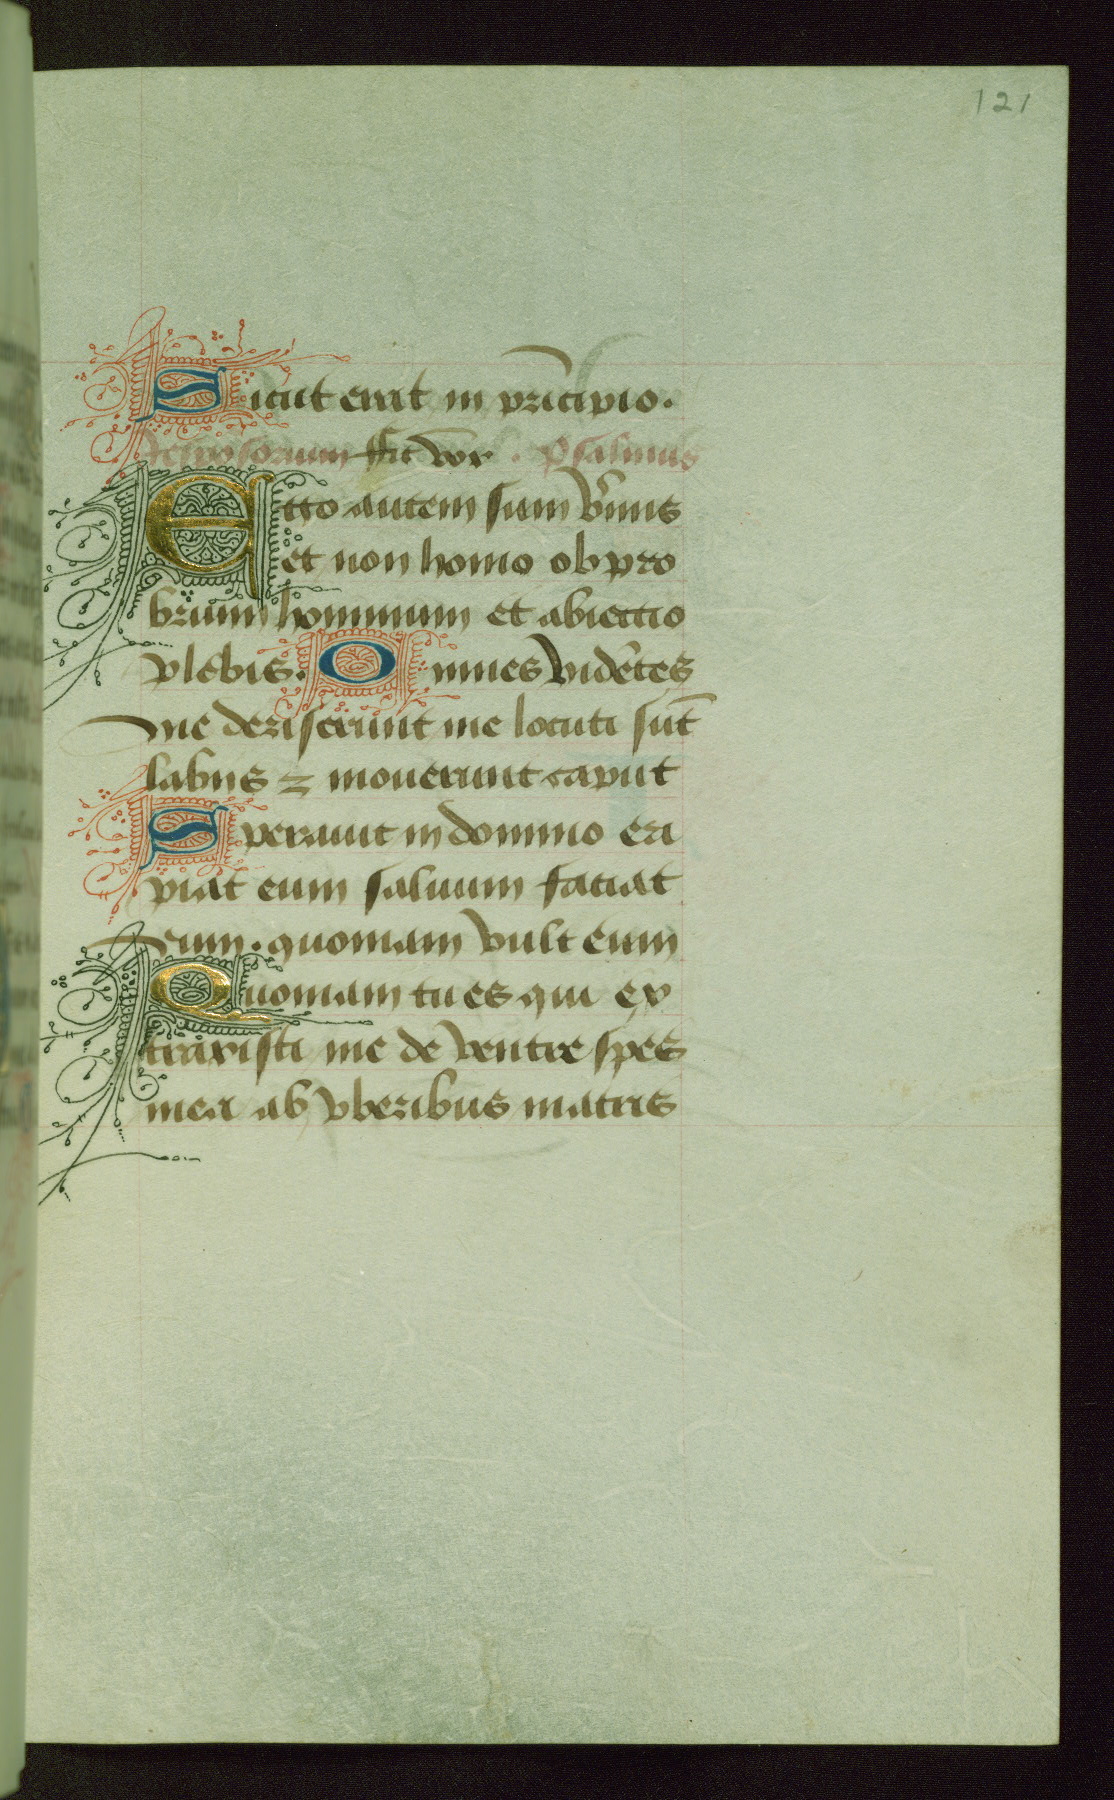 121
Sicut erat in prīcipio.
Fit dōr. Psalmus
Ego autem sum v̄mis
et non homo obpro
brium hominum et abiectio
plebis. Omnes vidētes
me deriserunt me locuti sūt
labiis ⁊ mouerunt caput
Sperauit in domino eri
piat eum saluum faciat
eum. quoniam vult eum
Quoniam tu es qui ex
traxisti me de ventre spes
mea ab vberibus matris